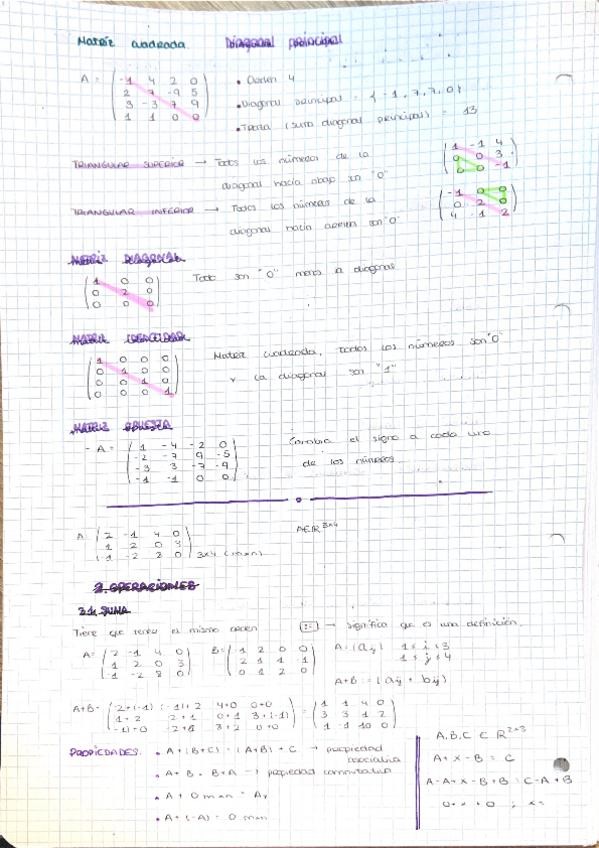 Matriz cuadrada Diagonal principal
A = ( -1 4 2 0
2 7 -9 5
3 -3 7 9
1 1 0 0 )
• Orden 4
• Diagonal principal = { -1, 7, 7, 0 }
• Traza (suma diagonal principal) = 13
TRIANGULAR SUPERIOR → Todos los números de la
diagonal hacia abajo son "0"
( 1 -1 4
0 0 3
0 0 -1 )
TRIANGULAR INFERIOR → Todos los números de la
diagonal hacia son "0"
( -1 0 0
0 2 0
4 -1 2 )
MATRIZ DIAGONAL
( 1 0 0
0 2 0
0 0 0 )
Todo son "0" menos la diagonal
MATRIZ IDENTIDAD
( 1 0 0 0
0 1 0 0
0 0 1 0
0 0 0 1 )
Matriz cuadrada, todos los números son "0"
y la diagonal son "1"
MATRIZ OPUESTA
- A = ( 1 -4 -2 0
-2 -7 9 -5
-3 3 -7 -9
-1 -1 0 0 )
Cambia el signo a cada uno
de los números
A ( 2 -1 4 0
1 2 0 3
-1 -2 0 ) 3x4 (mxn)
A∈R 3x4
2. OPERACIONES
2.1. SUMA
Tiene que tener el mismo orden
:= → significa que es una definición.
A = ( 2 -1 4 0
1 2 0 3
-1 -2 0 )
B = ( -1 2 0 0
2 1 1 1
0 1 2 0 )
A = (aij) 1 ≤ i ≤ 3
1 ≤ j ≤ 4
A+B = (aij + bij)
A+B = ( 2+(-1) (-1)+2 4+0 0+0
1+2 2+1 0+1 3+(-1)
-1+0 -2+1 0+0 ) = ( 1 1 4 0
3 3 1 2
-1 -1 10 0 )
PROPIEDADES:
• A+(B+C) = (A+B)+C → propiedad
asociativa
• A+B = B+A → propiedad conmutativa
• A + 0 mxn = A
• A+(-A) = 0 mxn
A,B,C ∈ R 2x3
A+X-B = C
A-A+X-B+B = C-A+B